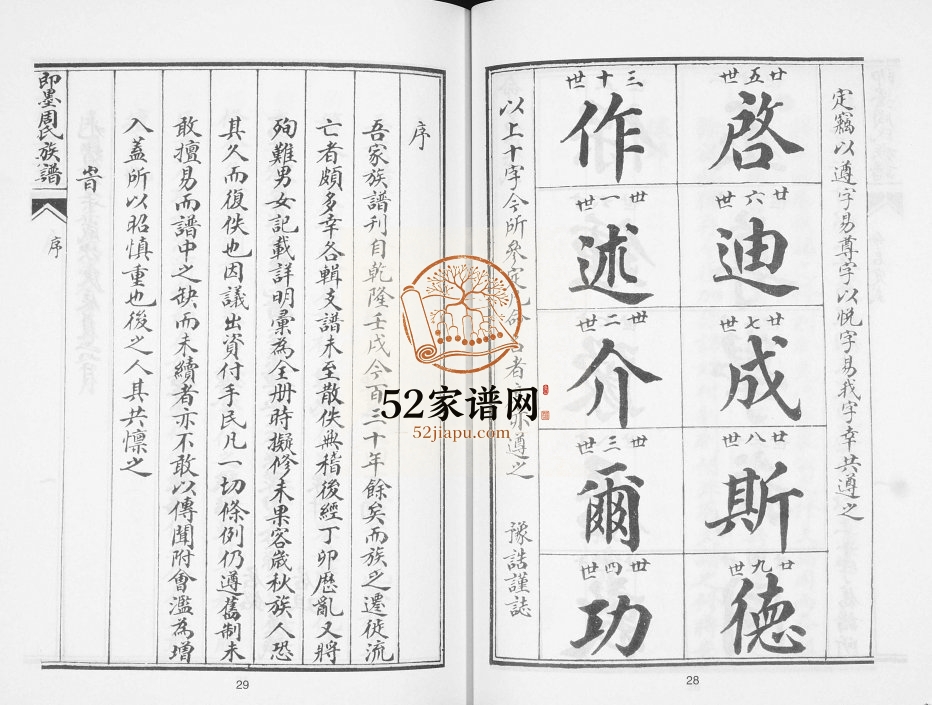 定竊以遵字易尊字以悅字易我字幸共遵之
廿五世
啓
廿六世
迪
廿七世
成
廿八世
斯
廿九世
德
三十世
作
卅一世
述
卅二世
介
卅三世
爾
卅四世
功
以上十字今所參定凡命名者亦遵之
豫誥謹誌
28
序
吾家族譜刊自乾隆壬戌今百三十年餘矣而族之遷徙流
亡者頗多幸各輯支譜未至散佚無稽後經丁卯歷亂又將
殉難男女記載詳明彙為全册時擬修未果客歲秋族人恐
其久而復佚也因議出資付手民凡一切條例仍遵舊制未
敢擅易而譜中之缺而未續者亦不敢以傳聞附會濫為增
入蓋所以昭慎重也後之人其共懍之
即墨周氏族譜
序
29
52家谱网
52jiapu.com